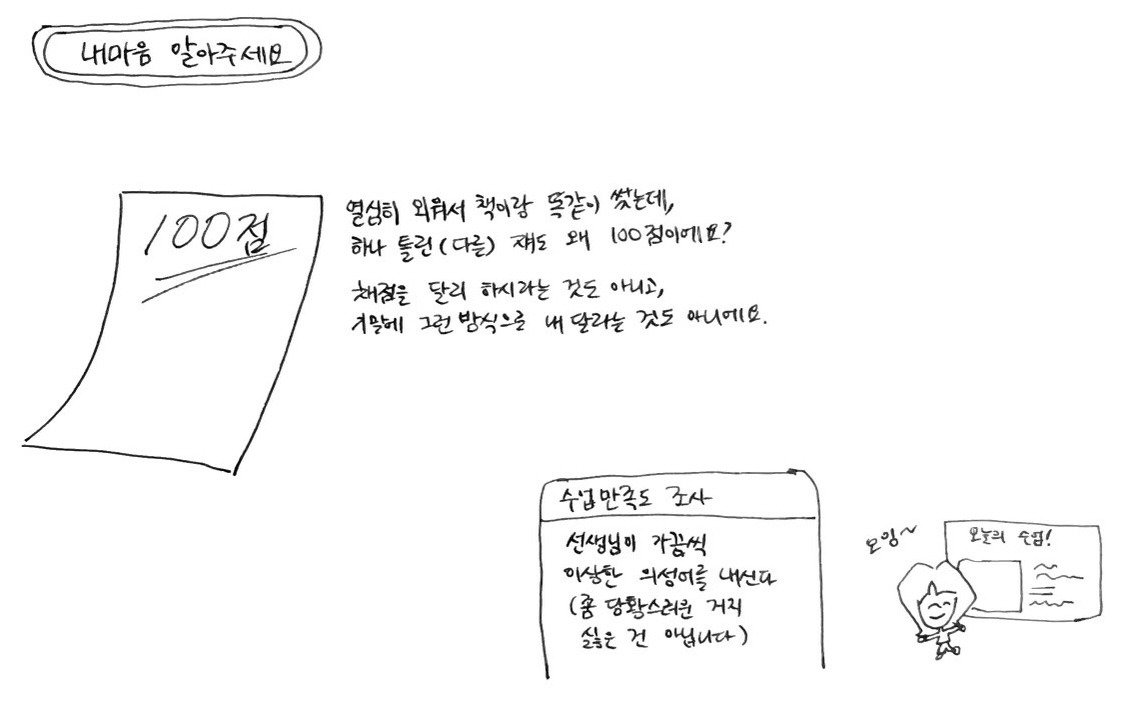 내마음 알아주세요
100점
열심히 외워서 책이랑 똑같이 썼는데,
하나 틀린(다른) 쟤도 왜 100점이에요?
채점을 달리 하시라는 것도 아니고,
기말에 그런 방식으로 내 달라는 것도 아니에요.
수업만족도 조사
선생님이 가끔씩
이상한 의성어를 내신다
(좀 당황스러운 거지
싫은 건 아닙니다)
모잉~
오늘의 수업!